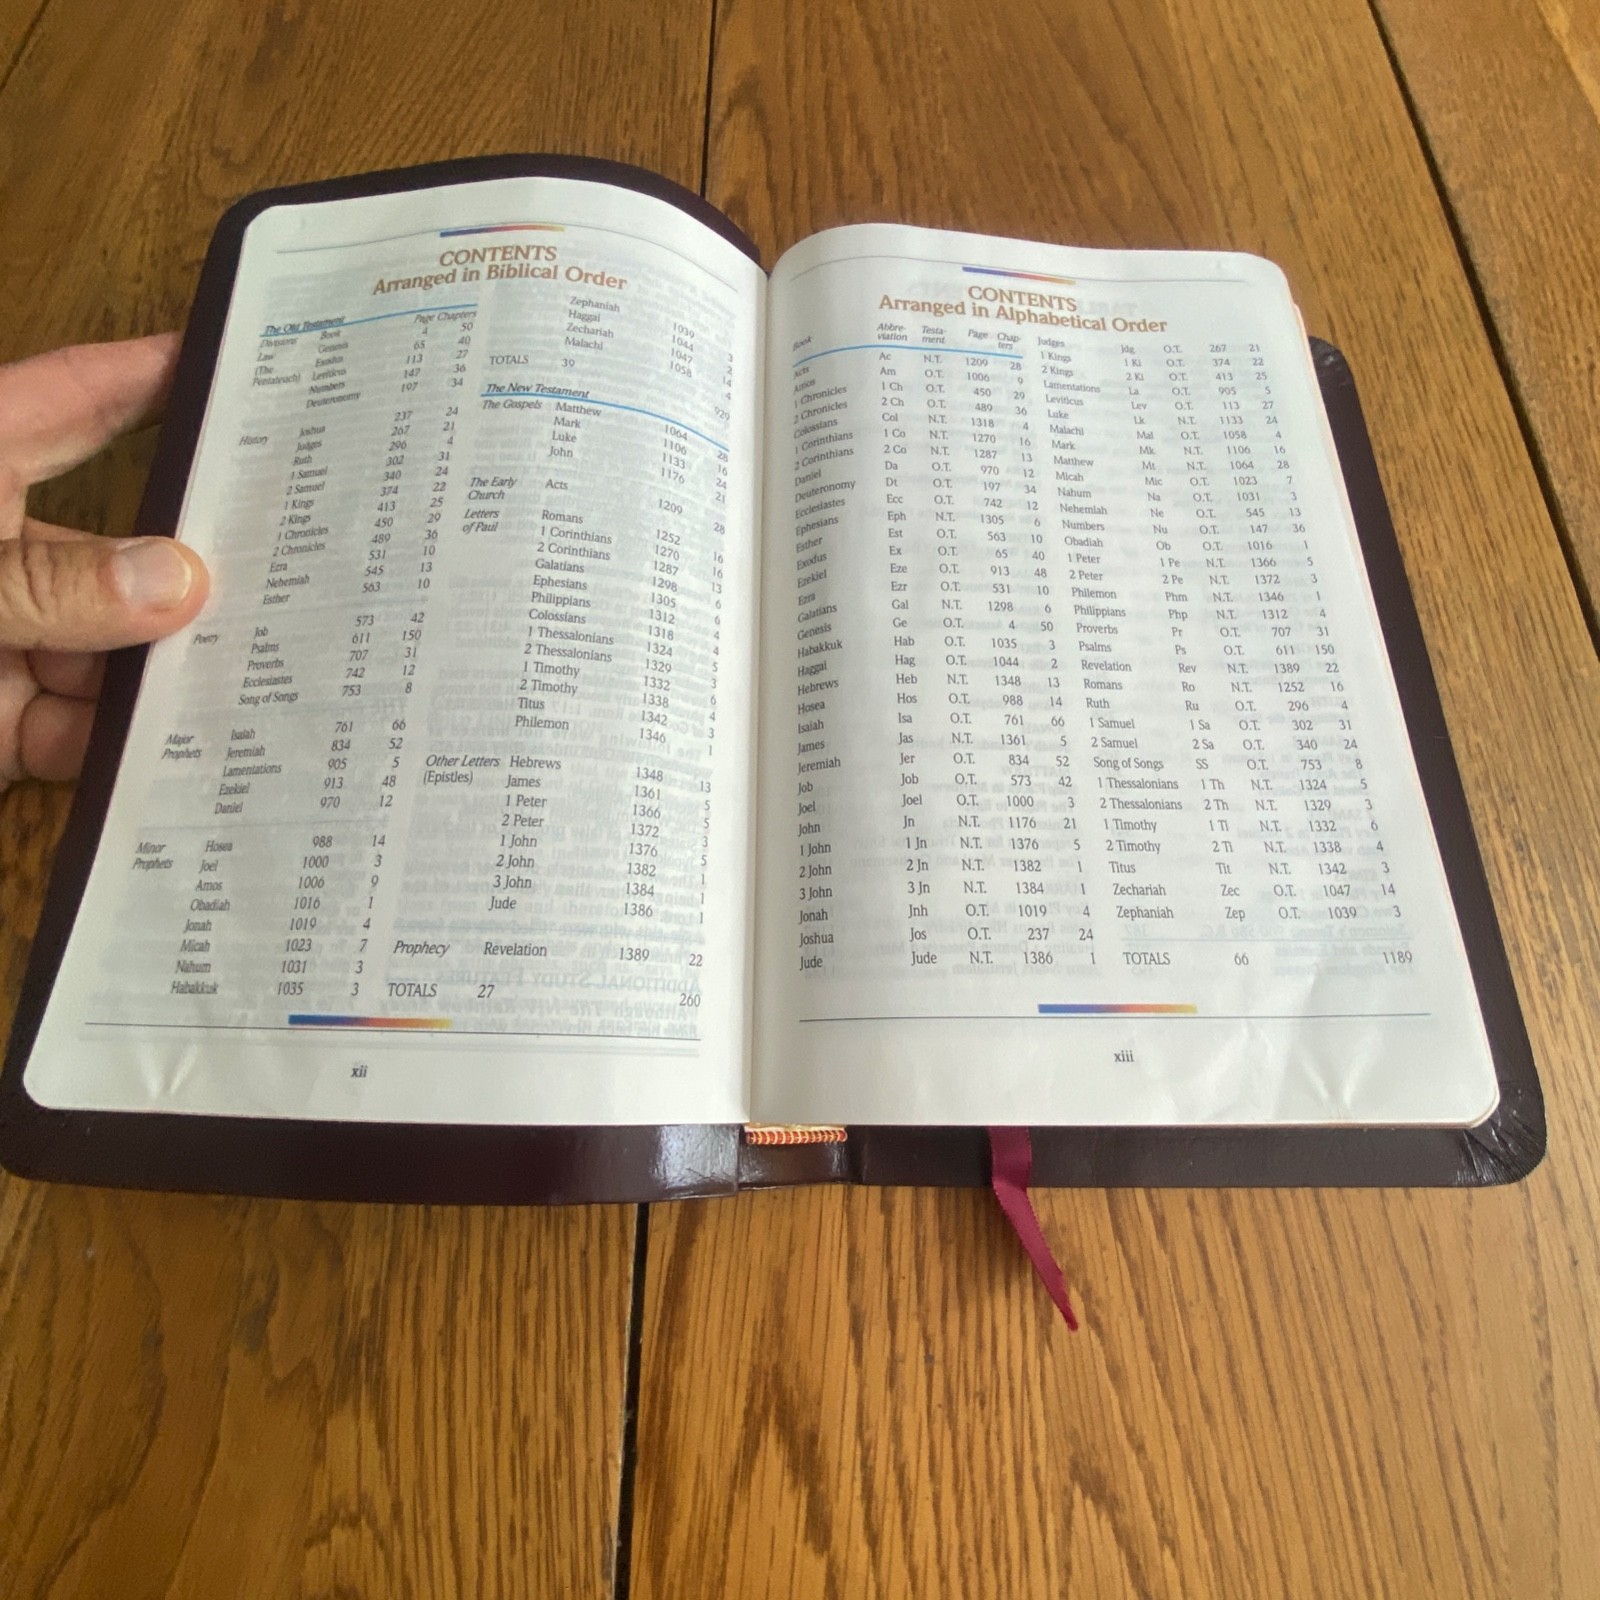 CONTENTS
Arranged in Biblical Order
The Old Testament
Divisions Book Page Chapters
Law Genesis 4 50
(The Exodus 65 40
Pentateuch) Leviticus 113 27
Numbers 147 36
Deuteronomy 197 34
History Joshua 237 24
Judges 267 21
Ruth 296 4
1 Samuel 302 31
2 Samuel 340 24
1 Kings 374 22
2 Kings 413 25
1 Chronicles 450 29
2 Chronicles 489 36
Ezra 531 10
Nehemiah 545 13
Esther 563 10
Poetry Job 573 42
Psalms 611 150
Proverbs 707 31
Ecclesiastes 742 12
Song of Songs 753 8
Major Isaiah 761 66
Prophets Jeremiah 834 52
Lamentations 905 5
Ezekiel 913 48
Daniel 970 12
Minor Hosea 988 14
Prophets Joel 1000 3
Amos 1006 9
Obadiah 1016 1
Jonah 1019 4
Micah 1023 7
Nahum 1031 3
Habakkuk 1035 3
Zephaniah 1039 3
Haggai 1044 2
Zechariah 1047 14
Malachi 1058 4
TOTALS 39 929
The New Testament
The Gospels Matthew 1064 28
Mark 1106 16
Luke 1133 24
John 1176 21
The Early Acts 1209 28
Church
Letters Romans 1252 16
of Paul 1 Corinthians 1270 16
2 Corinthians 1287 13
Galatians 1298 6
Ephesians 1305 6
Philippians 1312 4
Colossians 1318 4
1 Thessalonians 1324 5
2 Thessalonians 1329 3
1 Timothy 1332 6
2 Timothy 1338 4
Titus 1342 3
Philemon 1346 1
Other Letters Hebrews 1348 13
(Epistles) James 1361 5
1 Peter 1366 5
2 Peter 1372 3
1 John 1376 5
2 John 1382 1
3 John 1384 1
Jude 1386 1
Prophecy Revelation 1389 22
TOTALS 27 260
xii
CONTENTS
Arranged in Alphabetical Order
Book Abbre- Testa- Page Chap-
viation ment ters
Acts Ac N.T. 1209 28
Amos Am O.T. 1006 9
1 Chronicles 1 Ch O.T. 450 29
2 Chronicles 2 Ch O.T. 489 36
Colossians Col N.T. 1318 4
1 Corinthians 1 Co N.T. 1270 16
2 Corinthians 2 Co N.T. 1287 13
Daniel Da O.T. 970 12
Deuteronomy Dt O.T. 197 34
Ecclesiastes Ecc O.T. 742 12
Ephesians Eph N.T. 1305 6
Esther Est O.T. 563 10
Exodus Ex O.T. 65 40
Ezekiel Eze O.T. 913 48
Ezra Ezr O.T. 531 10
Galatians Gal N.T. 1298 6
Genesis Ge O.T. 4 50
Habakkuk Hab O.T. 1035 3
Haggai Hag O.T. 1044 2
Hebrews Heb N.T. 1348 13
Hosea Hos O.T. 988 14
Isaiah Isa O.T. 761 66
James Jas N.T. 1361 5
Jeremiah Jer O.T. 834 52
Job Job O.T. 573 42
Joel Joel O.T. 1000 3
John Jn N.T. 1176 21
1 John 1 Jn N.T. 1376 5
2 John 2 Jn N.T. 1382 1
3 John 3 Jn N.T. 1384 1
Jonah Jnh O.T. 1019 4
Joshua Jos O.T. 237 24
Jude Jude N.T. 1386 1
Judges Jdg O.T. 267 21
1 Kings 1 Ki O.T. 374 22
2 Kings 2 Ki O.T. 413 25
Lamentations La O.T. 905 5
Leviticus Lev O.T. 113 27
Luke Lk N.T. 1133 24
Malachi Mal O.T. 1058 4
Mark Mk N.T. 1106 16
Matthew Mt N.T. 1064 28
Micah Mic O.T. 1023 7
Nahum Na O.T. 1031 3
Nehemiah Ne O.T. 545 13
Numbers Nu O.T. 147 36
Obadiah Ob O.T. 1016 1
1 Peter 1 Pe N.T. 1366 5
2 Peter 2 Pe N.T. 1372 3
Philemon Phm N.T. 1346 1
Philippians Php N.T. 1312 4
Proverbs Pr O.T. 707 31
Psalms Ps O.T. 611 150
Revelation Rev N.T. 1389 22
Romans Ro N.T. 1252 16
Ruth Ru O.T. 296 4
1 Samuel 1 Sa O.T. 302 31
2 Samuel 2 Sa O.T. 340 24
Song of Songs SS O.T. 753 8
1 Thessalonians 1 Th N.T. 1324 5
2 Thessalonians 2 Th N.T. 1329 3
1 Timothy 1 Ti N.T. 1332 6
2 Timothy 2 Ti N.T. 1338 4
Titus Tit N.T. 1342 3
Zechariah Zec O.T. 1047 14
Zephaniah Zep O.T. 1039 3
TOTALS 66 1189
xiii